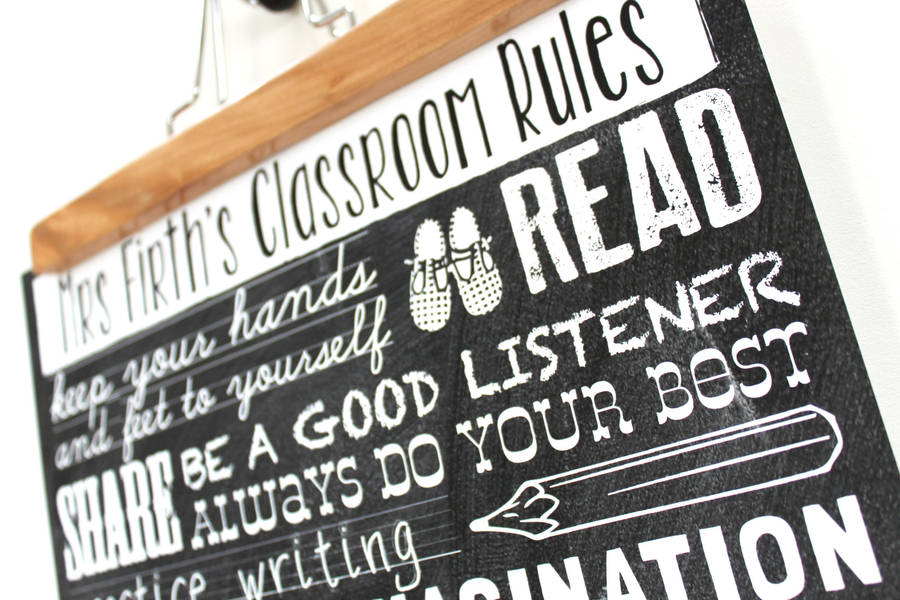 Mrs Firth's Classroom Rules
keep your hands
and feet to yourself
READ
SHARE
BE A GOOD LISTENER
ALWAYS DO YOUR BEST
writing